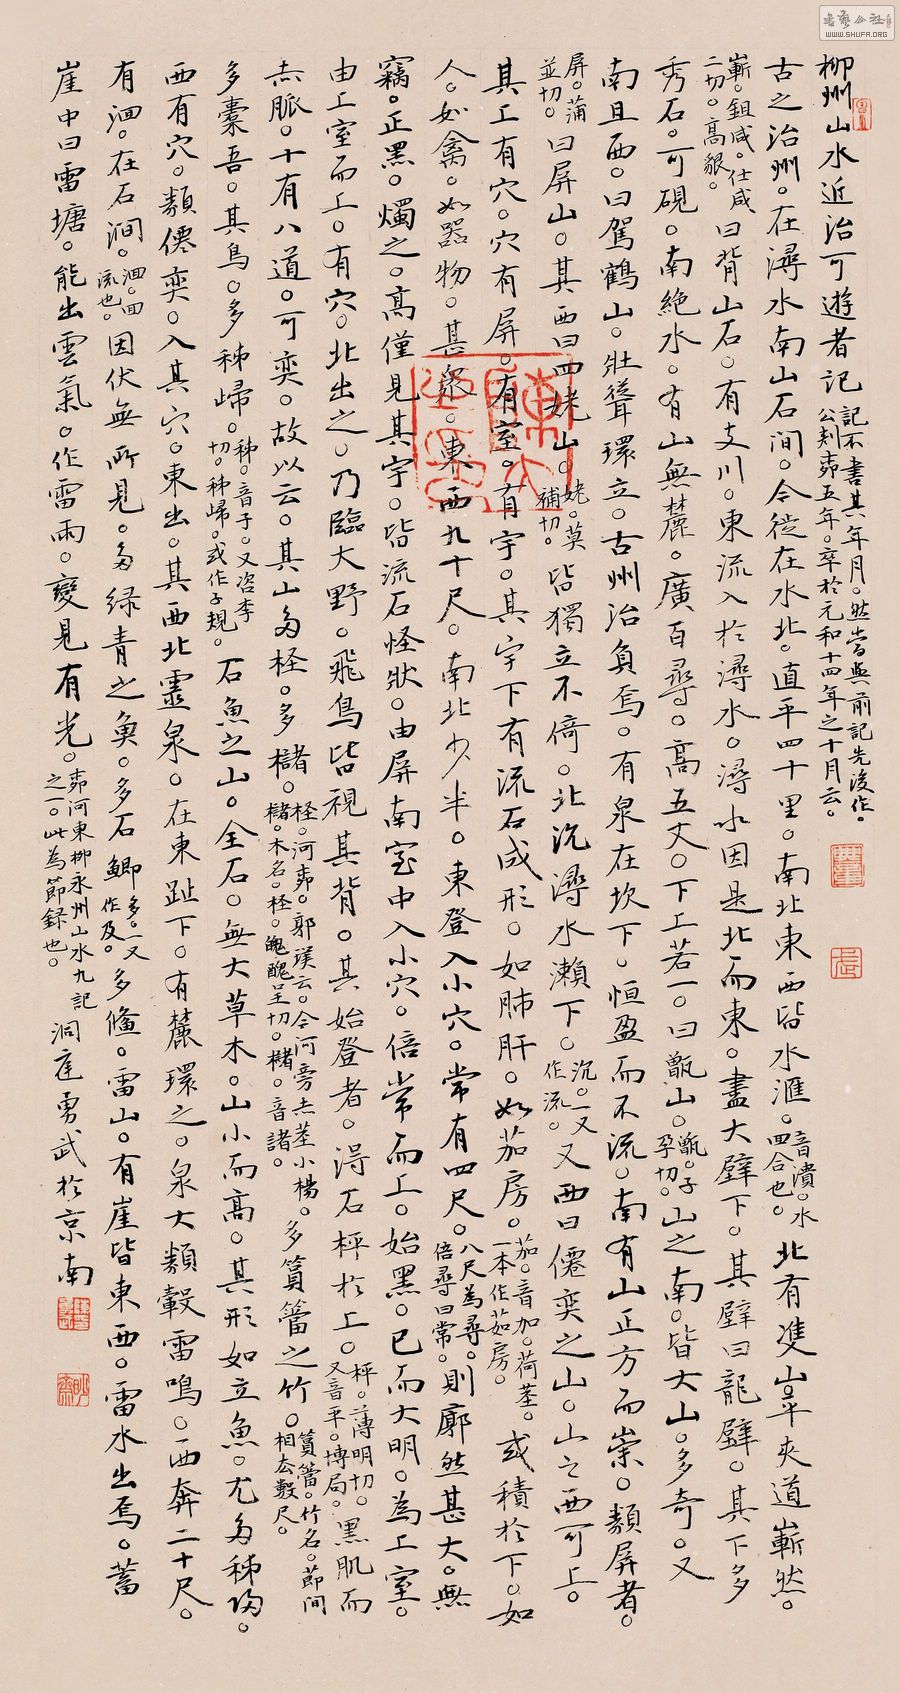 柳州山水近治可遊者記 記不書其年月。然當與前記先後作。公刺柳五年。卒於元和十四年之十月云。
古之治州。在潯水南山石間。今徙在水北。直平四十里。南北東西皆水滙。音潰。水四合也。北有雙山。夾道嶄然。
嶄。鉏咸。仕咸二切。高貌。曰背山石。有支川。東流入於潯水。潯水因是北而東。盡大壁下。其壁曰龍壁。其下多
秀石。可硯。南絶水。有山無麓。廣百尋。高五丈。下上若一。曰甑山。甑。子孕切。山之南。皆大山。多奇。又
南且西。曰駕鶴山。壯聳環立。古州治負焉。有泉在坎下。恒盈而不流。南有山正方而崇。類屏者。
屏。蒲並切。曰屏山。其西曰四姥山。姥。莫補切。皆獨立不倚。北沉潯水瀨下。沉。一又作流。又西曰僊奕之山。山之西可上。
其上有穴。穴有屏。有室。有宇。其宇下有流石成形。如肺肝。如茄房。茄。音加。荷莖。一本作茹房。或積於下。如
人。如禽。如器物。甚衆。東西九十尺。南北少半。東登入小穴。常有四尺。八尺為尋。倍尋曰常。則廓然甚大。無
竅。正黑。燭之。高僅見其宇。皆流石怪狀。由屏南室中入小穴。倍常而上。始黑。已而大明。為上室。
由上室而上。有穴。北出之。乃臨大野。飛鳥皆視其背。其始登者。得石枰於上。枰。蒲明切。又音平。博局。黑肌而
赤脈。十有八道。可奕。故以云。其山多檉。多櫧。檉。河柳。郭璞云。今河旁赤莖小楊。櫧。木名。檉。醜呈切。櫧。音諸。多篔簹之竹。篔簹。竹名。節間相去數尺。
多橐吾。其鳥。多秭歸。秭。音子。又咨李切。秭歸。或作子規。石魚之山。全石。無大草木。山小而高。其形如立魚。尤多秭歸。
西有穴。類僊奕。入其穴。東出。其西北靈泉。在東趾下。有麓環之。泉大類轂雷鳴。西奔二十尺。
有洄。在石澗。洄。回流也。因伏無所見。多綠青之魚。多石鯽 鯽。多一又作及。多鯈。雷山。有崖皆東西。雷水出焉。蓄
崖中曰雷塘。能出雲氣。作雷雨。變見有光。 柳河東柳永州山水九記之一。此為節録也。洞庭勇武於京南
書藝公社
WWW.SHUFA.ORG